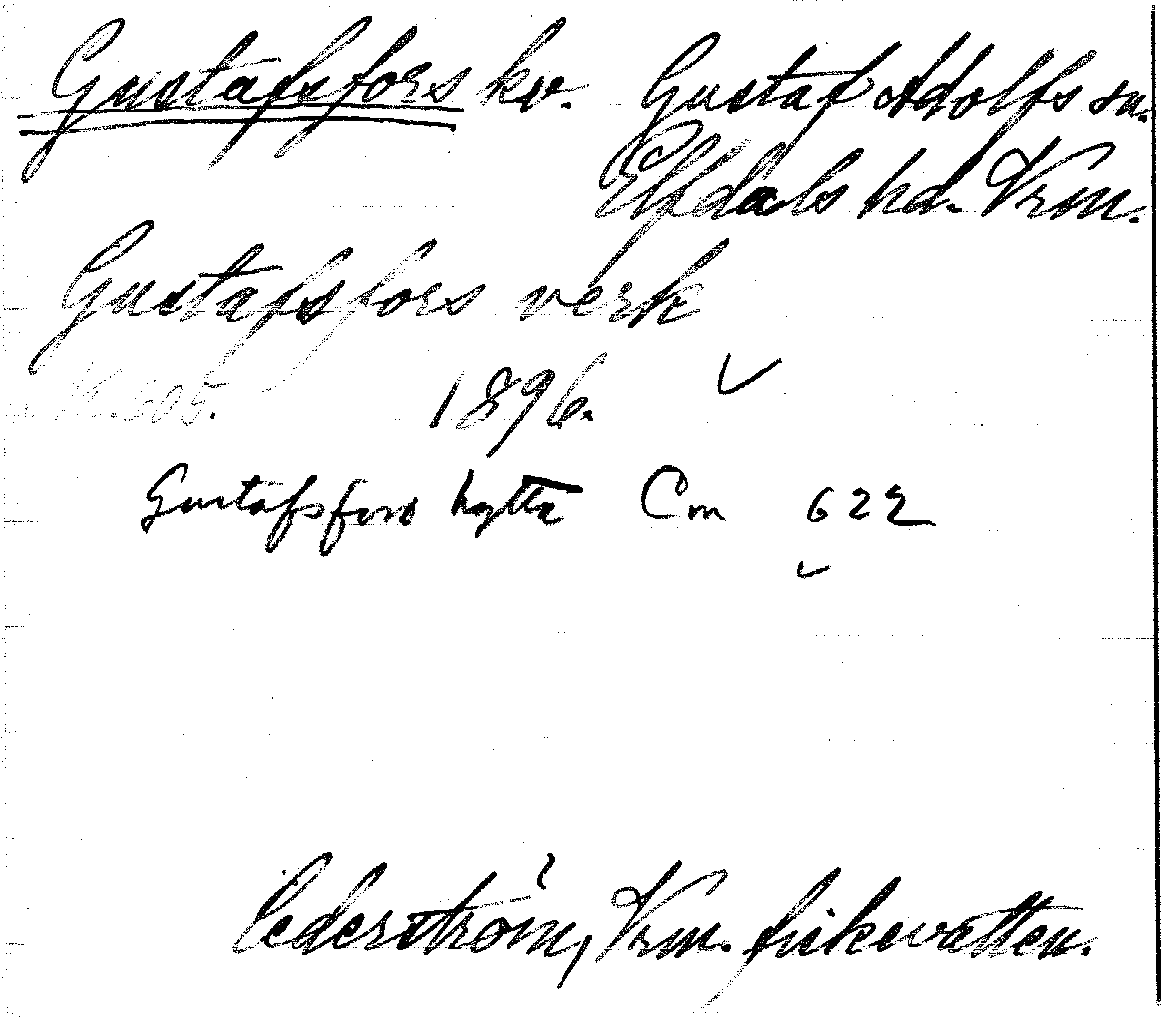 Gustafsfors kv. Gustaf Adolfs sn.
Elfdals hd. Vrm.
Gustafsfors verk
505. 1896.
Gustafsfors hytta Cm 622
Cederström, Vrm. fiskevatten.